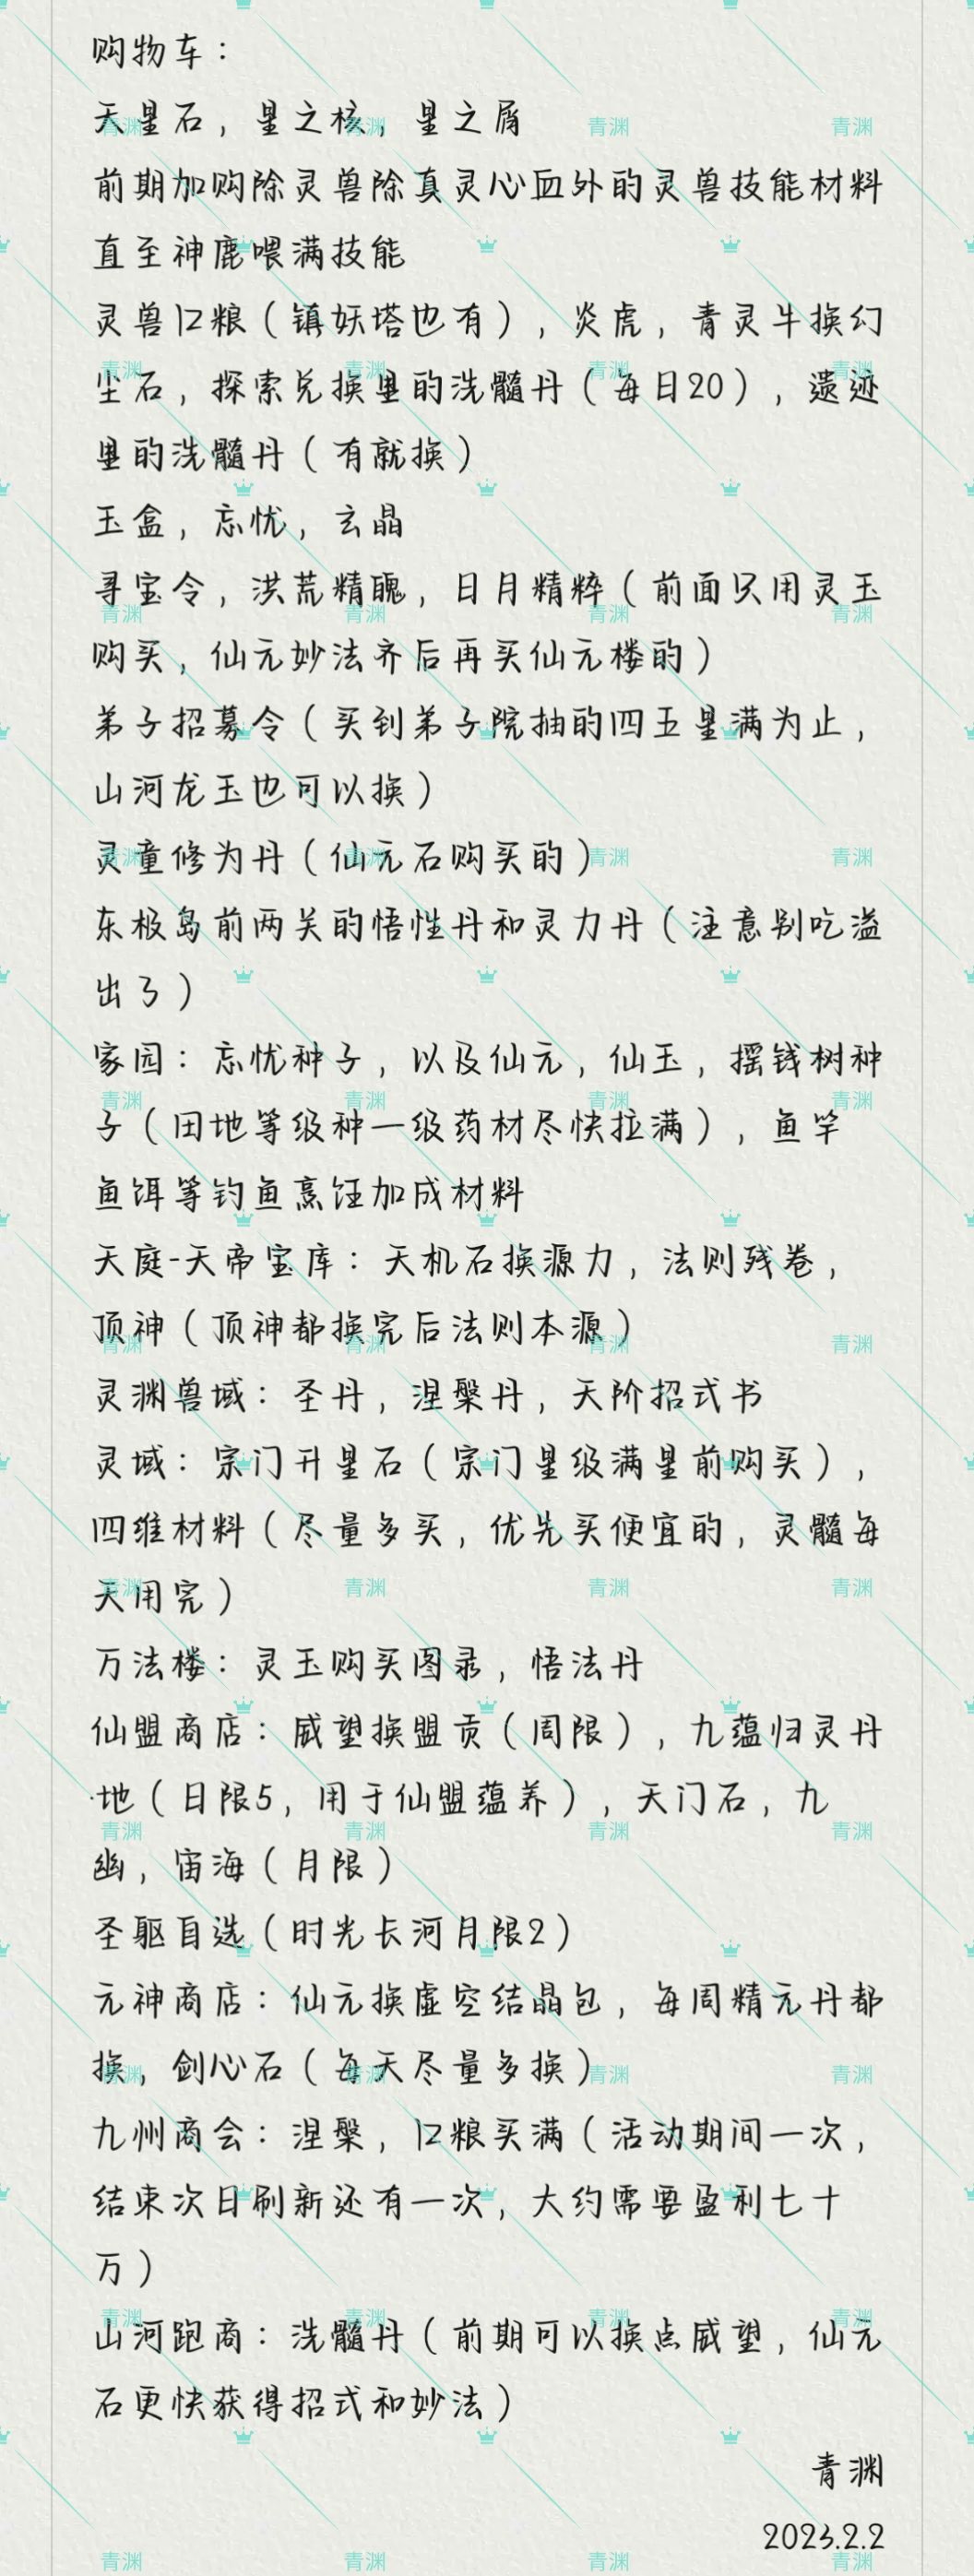 购物车：
天星石，星之核，星之屑
前期加购除灵兽除真灵心血外的灵兽技能材料
直至神鹿喂满技能
灵兽口粮（镇妖塔也有），炎虎，青灵牛换幻
尘石，探索兑换里的洗髓丹（每日20），遗迹
里的洗髓丹（有就换）
玉盒，忘忧，玄晶
寻宝令，洪荒精魄，日月精粹（前面只用灵玉
购买，仙元妙法齐后再买仙元楼的）
弟子招募令（买到弟子院抽的四五星满为止，
山河龙玉也可以换）
灵童修为丹（仙元石购买的）
东极岛前两关的悟性丹和灵力丹（注意别吃溢
出了）
家园：忘忧种子，以及仙元，仙玉，摇钱树种
子（田地等级种一级药材尽快拉满），鱼竿
鱼饵等钓鱼烹饪加成材料
天庭-天帝宝库：天机石换源力，法则残卷，
顶神（顶神都换完后法则本源）
灵渊兽域：圣丹，涅槃丹，天阶招式书
灵域：宗门升星石（宗门星级满星前购买），
四维材料（尽量多买，优先买便宜的，灵髓每
天用完）
万法楼：灵玉购买图录，悟法丹
仙盟商店：威望换盟贡（周限），九蕴归灵丹
·地（日限5，用于仙盟蕴养），天门石，九
幽，宙海（月限）
圣躯自选（时光长河月限2）
元神商店：仙元换虚空结晶包，每周精元丹都
换，剑心石（每天尽量多换）
九州商会：涅槃，口粮买满（活动期间一次，
结束次日刷新还有一次，大约需要盈利七十
万）
山河跑商：洗髓丹（前期可以换点威望，仙元
石更快获得招式和妙法）
青渊
2023.2.2